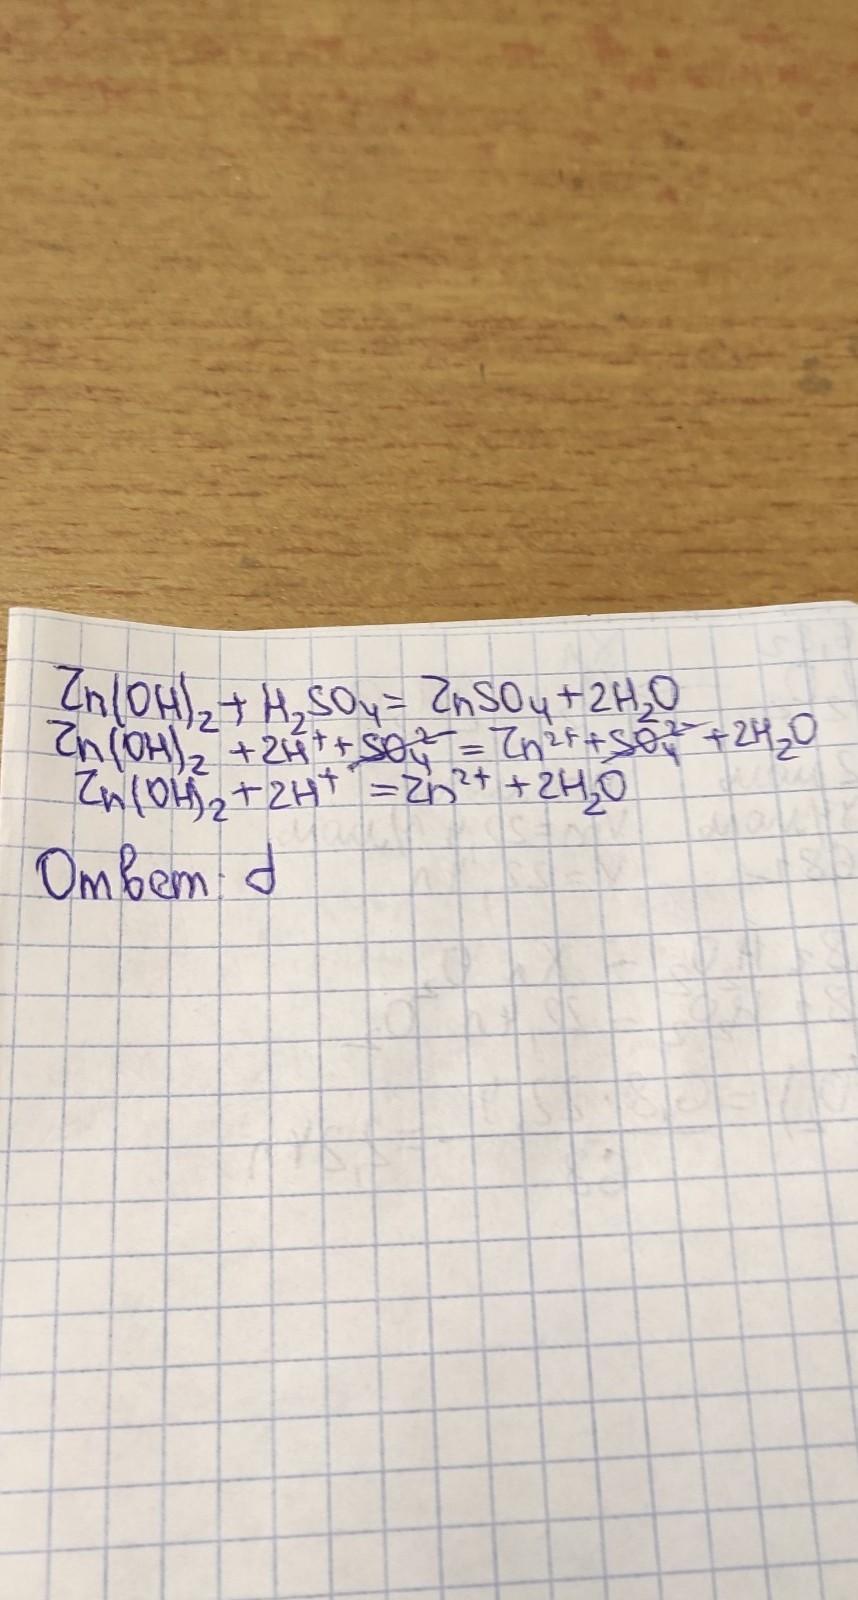 Zn(OH)₂ + H₂SO₄ = ZnSO₄ + 2H₂O
Zn(OH)₂ + 2H⁺ + SO₄²⁻ = Zn²⁺ + SO₄²⁻ + 2H₂O
Zn(OH)₂ + 2H⁺ = Zn²⁺ + 2H₂O
Ответ: d